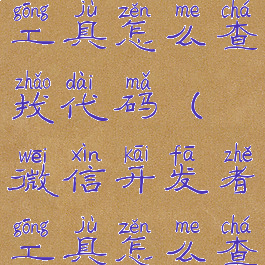 gōng jù zěn me chá
工具怎么查
zhǎo dài mǎ
找代码（
wēi xìn kāi fā zhě
微信开发者
gōng jù zěn me chá
工具怎么查